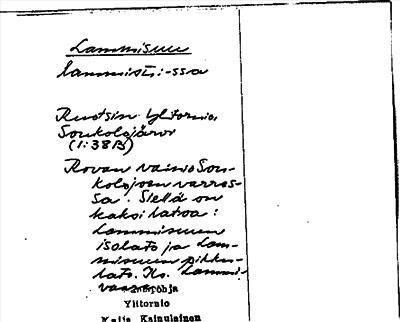 Lammisuu
Lammisuu:-ssa
Ruotsin Ylitornio,
Soukolojärvi
(1:38B)
Rovan vainio Sou-
kolojoen varres-
sa. Siellä on
kaksi latoa:
Lammisuun
isolato ja Lam-
misuun pikku-
lato. Ks. Lammi-
Ylitornio
Kaija Kainulainen